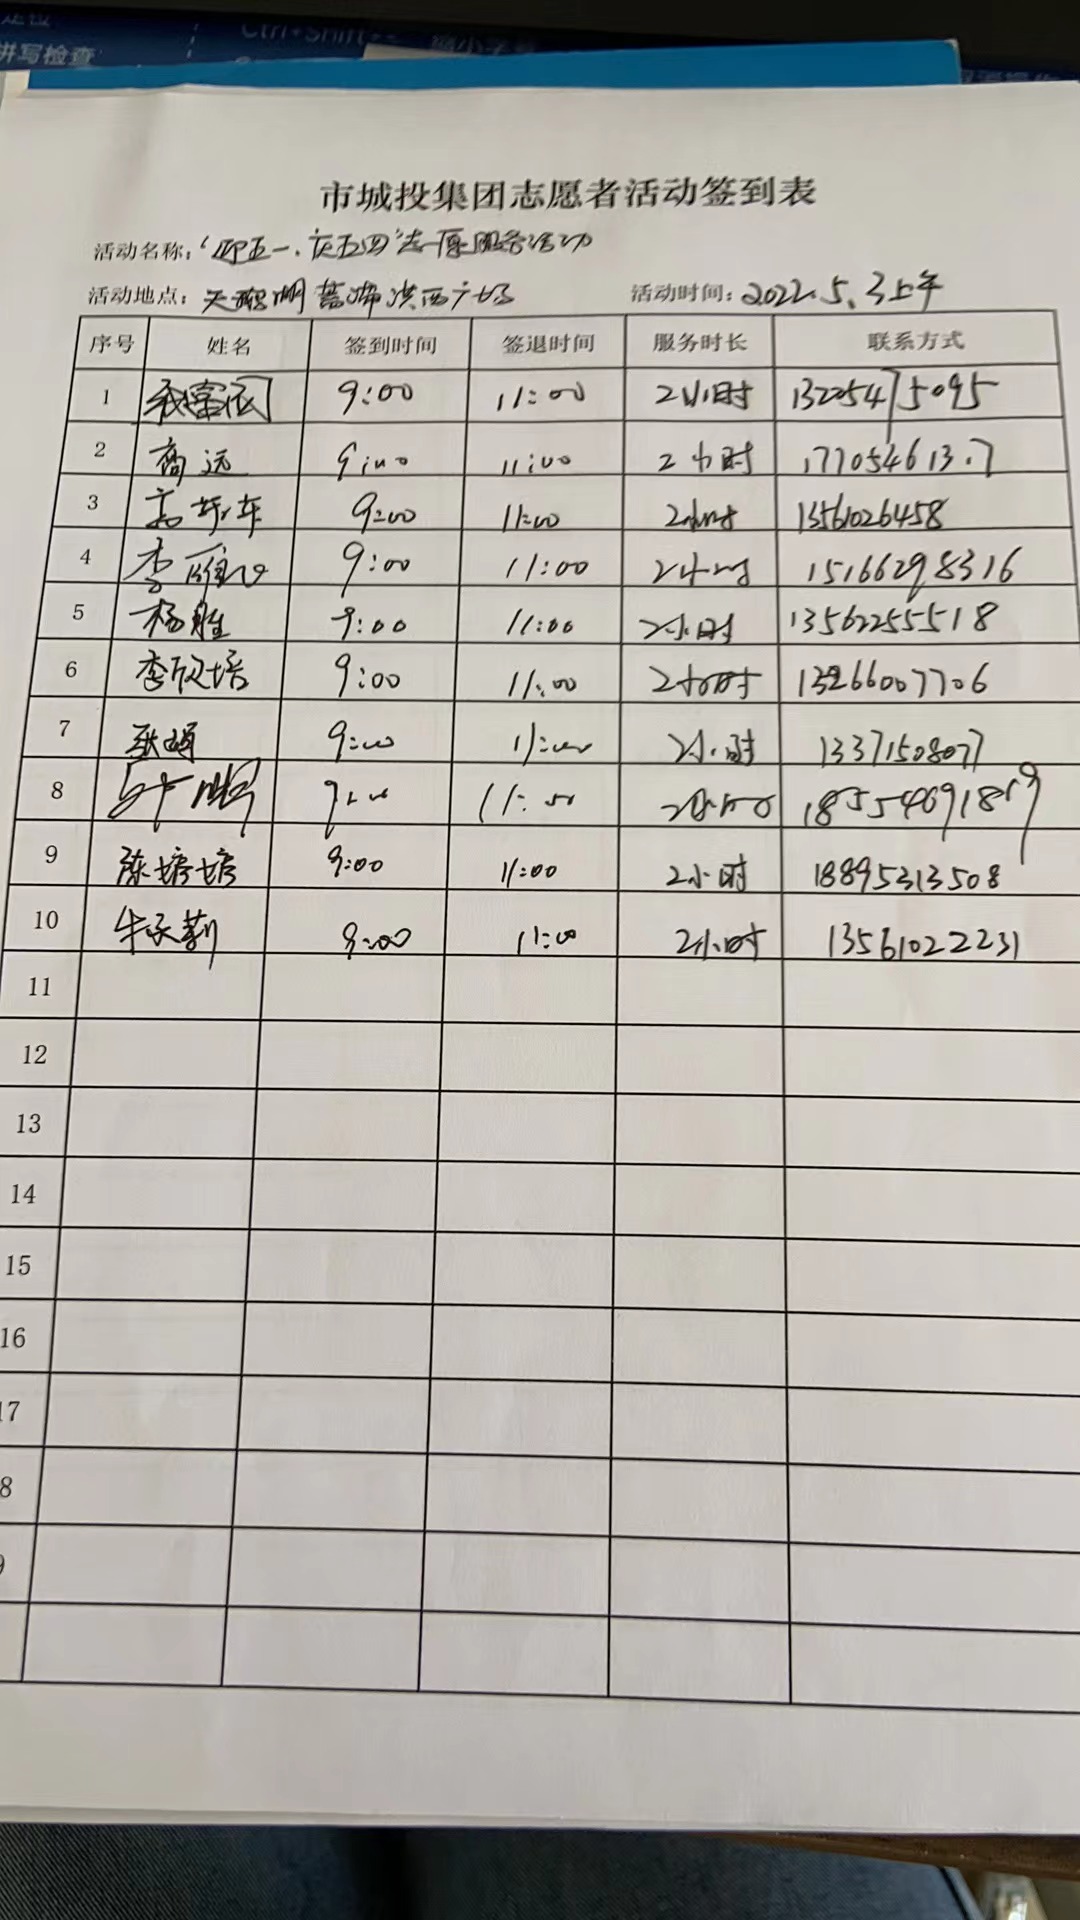 拼写检查
Ctrl+Shift+
市城投集团志愿者活动签到表
活动名称：“迎五一.庆五四”志愿服务活动
活动地点： 西广场 活动时间：2022.5.3上午
序号 姓名 签到时间 签退时间 服务时长 联系方式
1 9:00 11:00 2小时 13225475095
2 高远 9:00 11:00 2小时
3 9:00 11:00 2小时 13561026458
4 李 9:00 11:00 2小时 15166298316
5 杨胜 9:00 11:00 2小时 13562255518
6 李欣培 9:00 11:00 2小时 13266007706
7 9:00 11:00 2小时 13371508077
8 9:00 11:00
9 陈婷婷 9:00 11:00 2小时 18895313508
10 牛承莉 9:00 11:00 2小时 13561022231
11
12
13
14
15
16
17
8
9